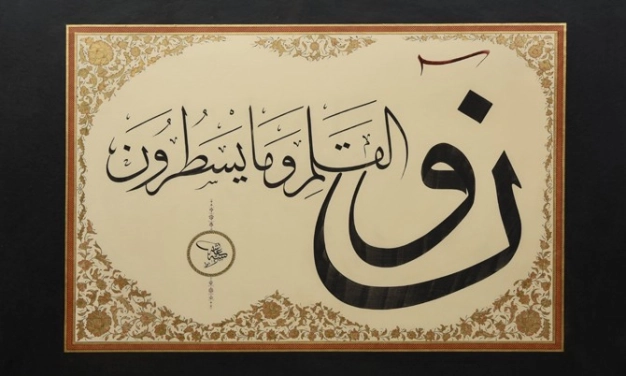 نٓ وَالقَلَمِ وَمَا يَسْطُرُونَ